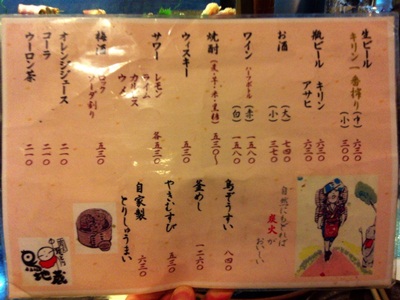 生ビール
キリン一番搾り(中) 六三〇
(小) 三〇
瓶ビール キリン 六三〇
アサヒ 六三〇
お酒 (大) 七四〇
(小) 三七〇
ワイン ハーフボトル (赤) 一五八〇
(白) 一五八〇
焼酎 (麦・芋・米・黒糖) 五三〇〜
ウィスキー 五三〇
サワー レモン
ライム
カルピス
ウメ 各五三〇
梅酒 ロック
ソーダ割り 五三〇
オレンジジュース 二一〇
コーラ 二一〇
ウーロン茶 二一〇
自然にもどれば
炭火が
おいしい
鳥ぞうすい 八四〇
釜めし 一二六〇
やきむすび 五三〇
自家製
とりしゅうまい 六三〇
地蔵